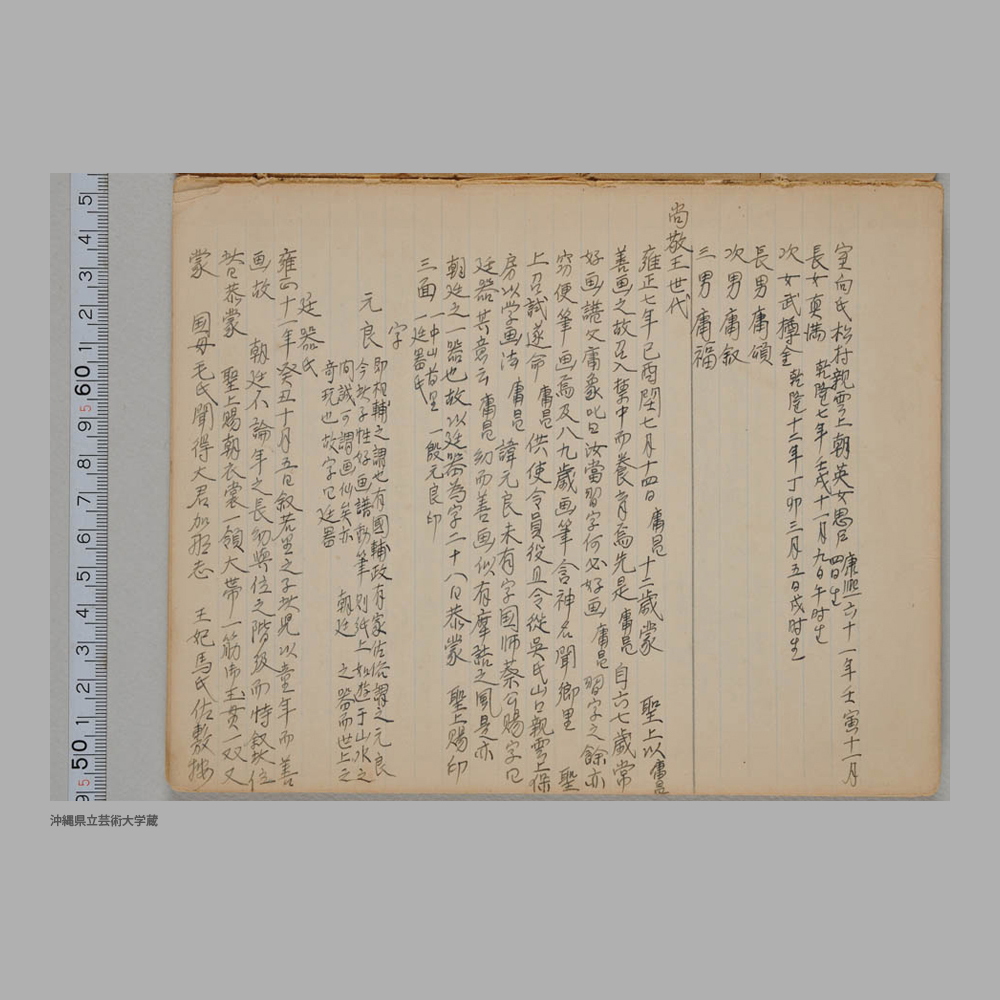 室向氏松村親雲上朝英女思戸康熙六十一年壬寅十一月四日生
長女真満 乾隆七年壬戌十一月九日午时生
次女武樽金 乾隆十二年丁卯三月五日戌时生
長男庸頎
次男庸叙
三男庸福
尚敬王世代
雍正七年己酉閏七月十四日庸昆十二歳蒙 聖上以庸昆
善画之故召入禁中而養育焉先是庸昆自六七歳常
好画譜父庸象叱曰汝當習字何必好画庸昆習字之餘亦
窃便筆画焉及八九歳画筆含神名聞郷里 聖
上召試遂命庸昆供使令員役且令從吳氏山口親雲上保
房以学画法 庸昆諱元良未有字国師蔡公賜字曰
廷器其意云庸昆幼而善画似有摩詰之風是亦
朝廷之一器也故以廷器為字二十八日恭蒙 聖上賜印
三面 一中山首里 一殷元良印
一廷器氏
字
元良 即相輔之謂也有國輔政有家佐治謂之元良
今於子性好画譜彩筆則紙上如遊于山水之
間誠可謂画仙矣亦 朝廷之器而世上之
奇玩也故字曰廷器
廷器氏
雍正十一年癸丑十月五日叙若里之子於児以童年而善
画故 朝廷不論年之長幼與位之階級而特叙此位
昔日恭蒙 聖上賜朝衣裳一領大帯一筋御玉貫一双又
蒙 国母毛氏聞得大君加那志 王妃馬氏佐敷按
5
4
3
2
1
60
5
9
8
7
6
5
4
3
2
1
50
5
9
沖縄県立芸術大学蔵